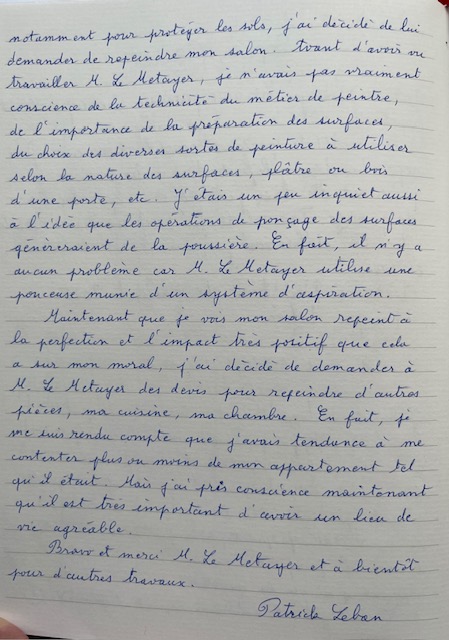 notamment pour protéger les sols, j'ai décidé de lui
demander de repeindre mon salon. Avant d'avoir vu
travailler M. Le Metayer, je n'avais pas vraiment
conscience de la technicité du métier de peintre,
de l'importance de la préparation des surfaces,
du choix des diverses sortes de peinture à utiliser
selon la nature des surfaces, plâtre ou bois
d'une porte, etc. J'étais un peu inquiet aussi
à l'idée que les opérations de ponçage des surfaces
génèreraient de la poussière. En fait, il n'y a
aucun problème car M. Le Metayer utilise une
ponceuse munie d'un système d'aspiration.
Maintenant que je vois mon salon repeint à
la perfection et l'impact très positif que cela
a sur mon moral, j'ai décidé de demander à
M. Le Metayer des devis pour repeindre d'autres
pièces, ma cuisine, ma chambre. En fait, je
me suis rendu compte que j'avais tendance à me
contenter plus ou moins de mon appartement tel
qu'il était. Mais j'ai pris conscience maintenant
qu'il est très important d'avoir un lieu de
vie agréable.
Bravo et merci M. Le Metayer et à bientôt
pour d'autres travaux.
Patrick Leban